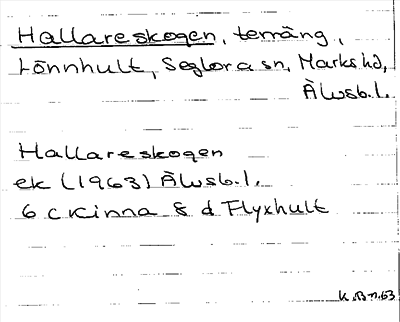 Hallareskogen, terräng.,
Lönnhult, Seglora sn, Marks hd,
Älvsb.l.
Hallareskogen
ek (1963) Älvsb.l.
6 c Kinna 8 d Flyxhult
K.B-n.63